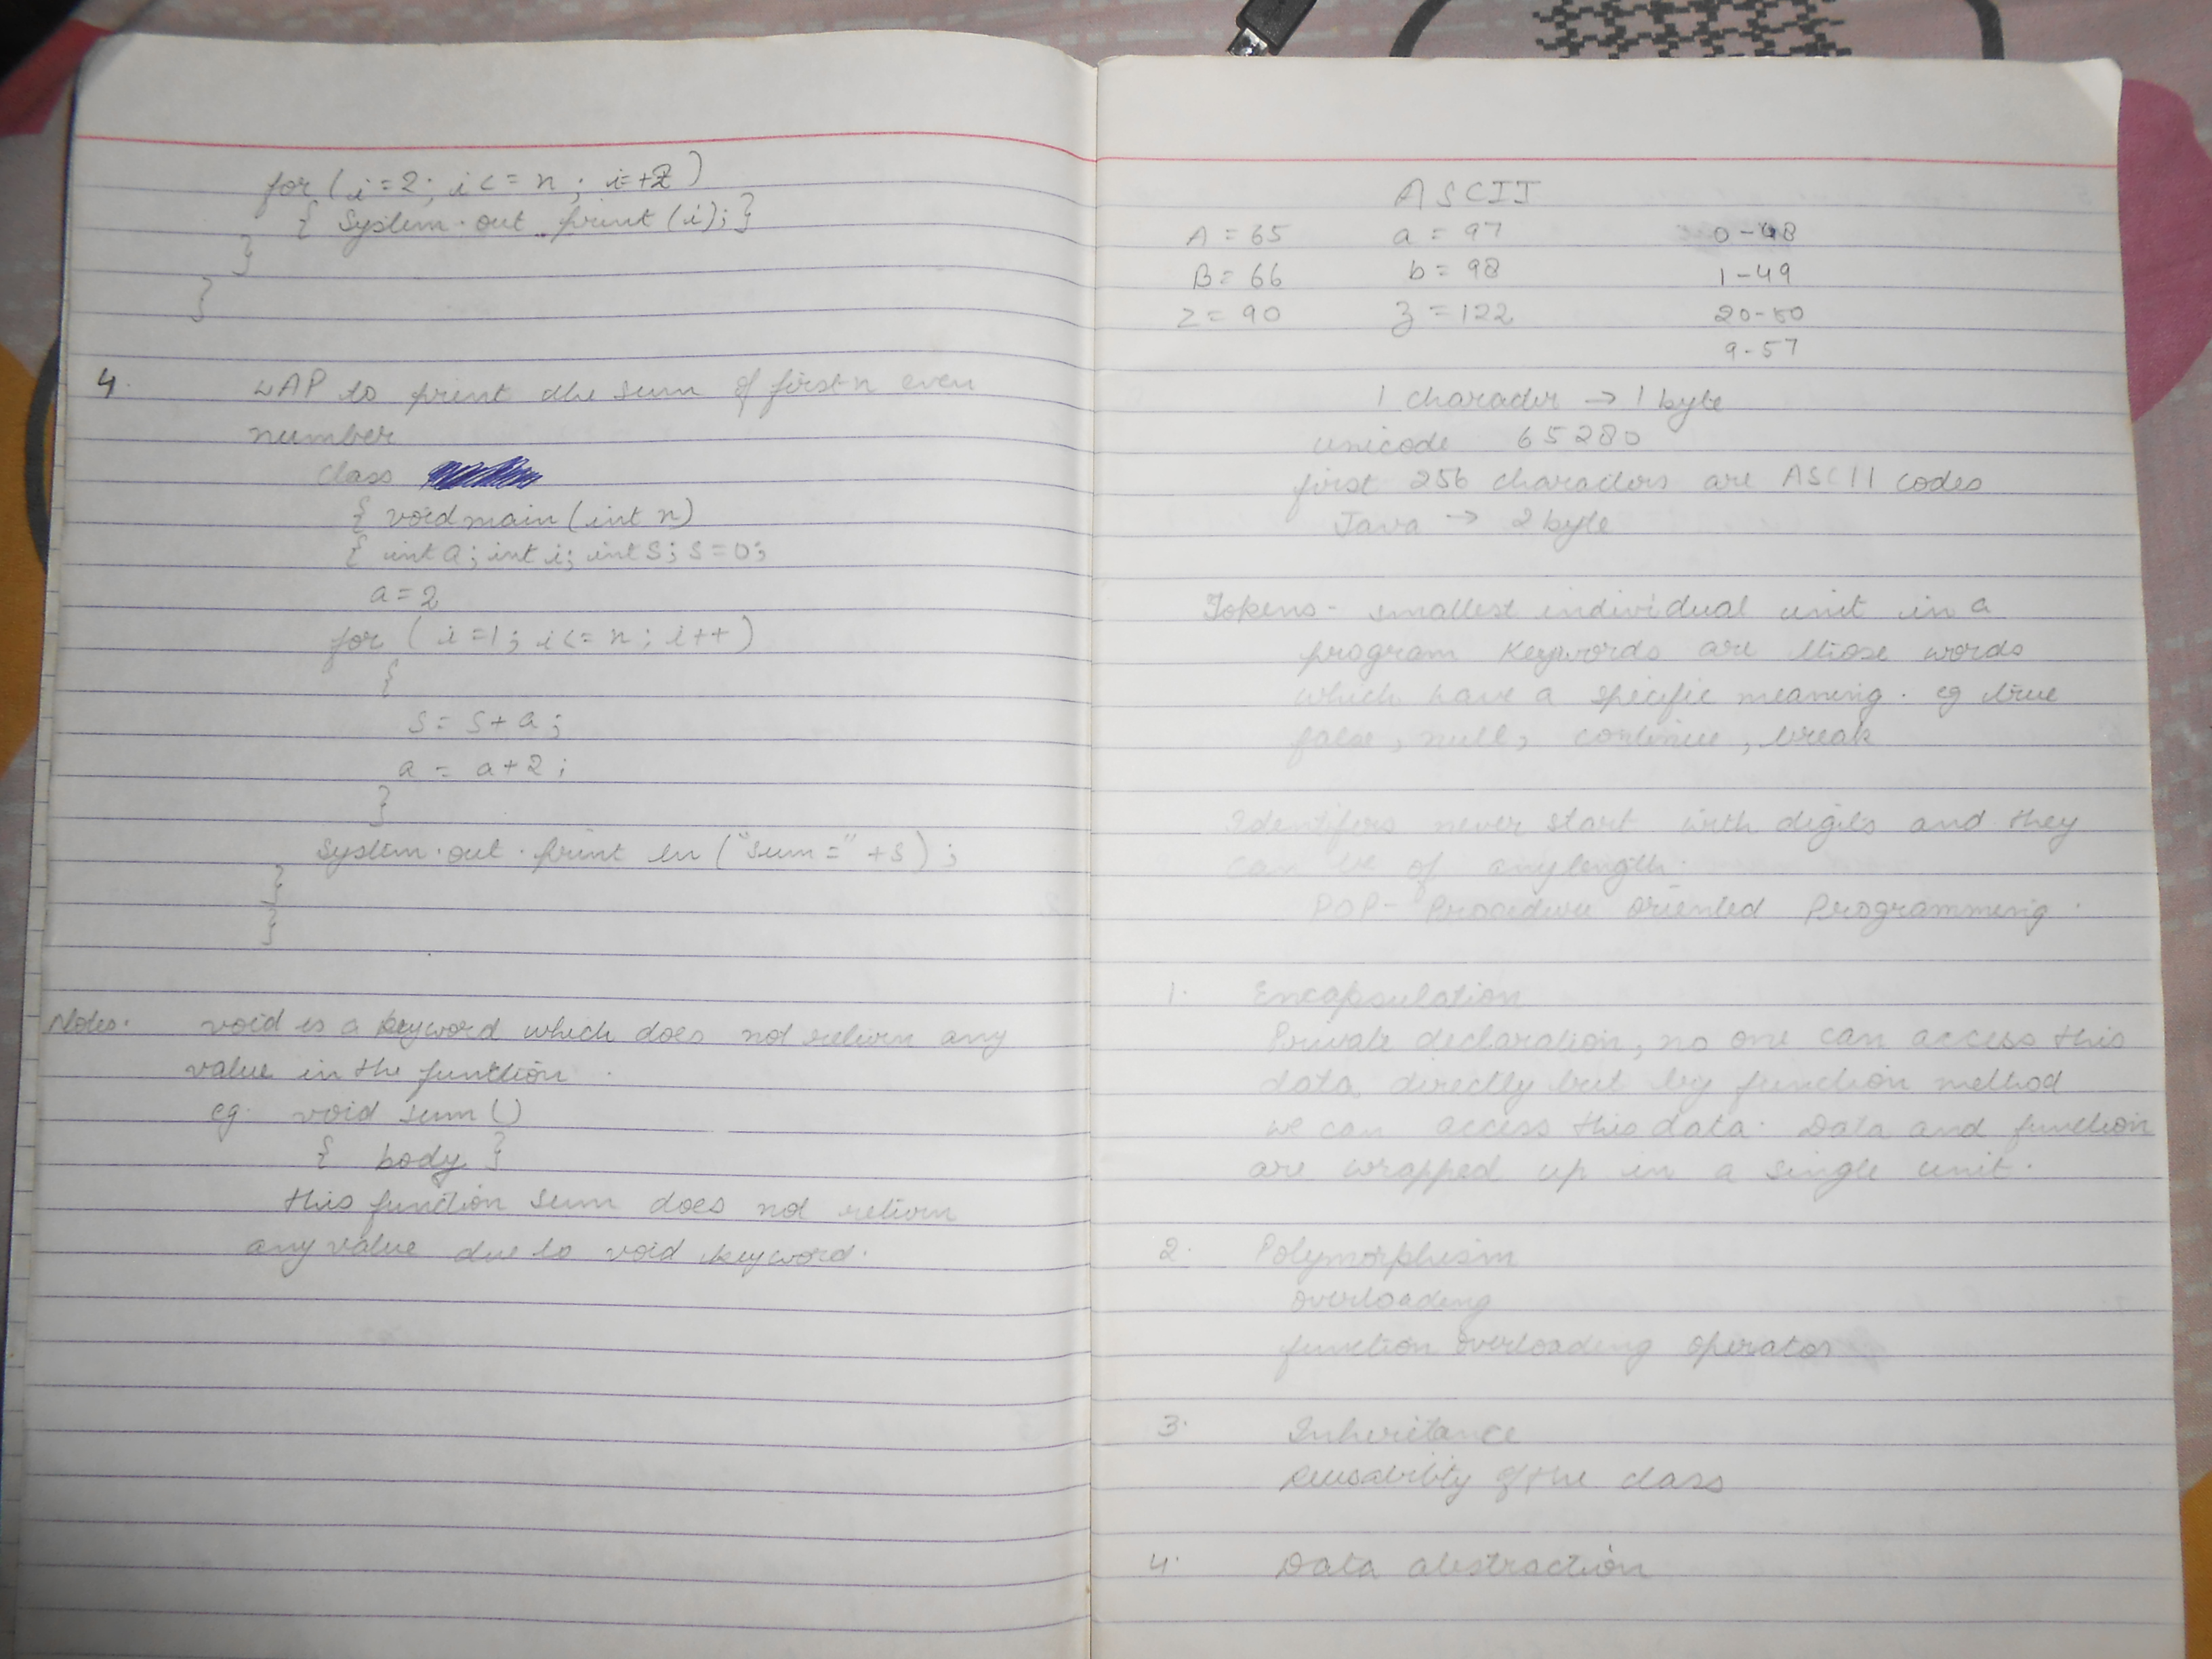 for (i=2; i<=n; i=+2)
{ System.out.print(i); }
}
}
4. WAP to print the sum of first n even
number
class
{ void main (int n)
{ int a; int i; int s; s=0;
a=2
for (i=1; i<=n; i++)
{
s = s+a;
a = a+2;
}
System.out.print ln ("sum=" +s);
}
}
Notes. void is a keyword which does not return any
value in the function.
eg. void sum ()
{ body }
this function sum does not return
any value due to void keyword.
ASCII
A = 65 a = 97 0-48
B = 66 b = 98 1-49
Z = 90 z = 122 20-50
9-57
1 character → 1 byte
unicode 65280
first 256 characters are ASCII codes
Java → 2 byte
Tokens - smallest individual unit in a
program Keywords are those words
which have a specific meaning. eg true
false, null, continue, break
Identifers never start with digits and they
can be of any length.
POP- Procedure oriented Programming.
1. Encapsulation
Private declaration, no one can access this
data directly but by function method
we can access this data. Data and function
are wrapped up in a single unit.
2. Polymorphism
overloading
function overloading operator
3. Inheritance
Reusability of the class
4. Data abstraction